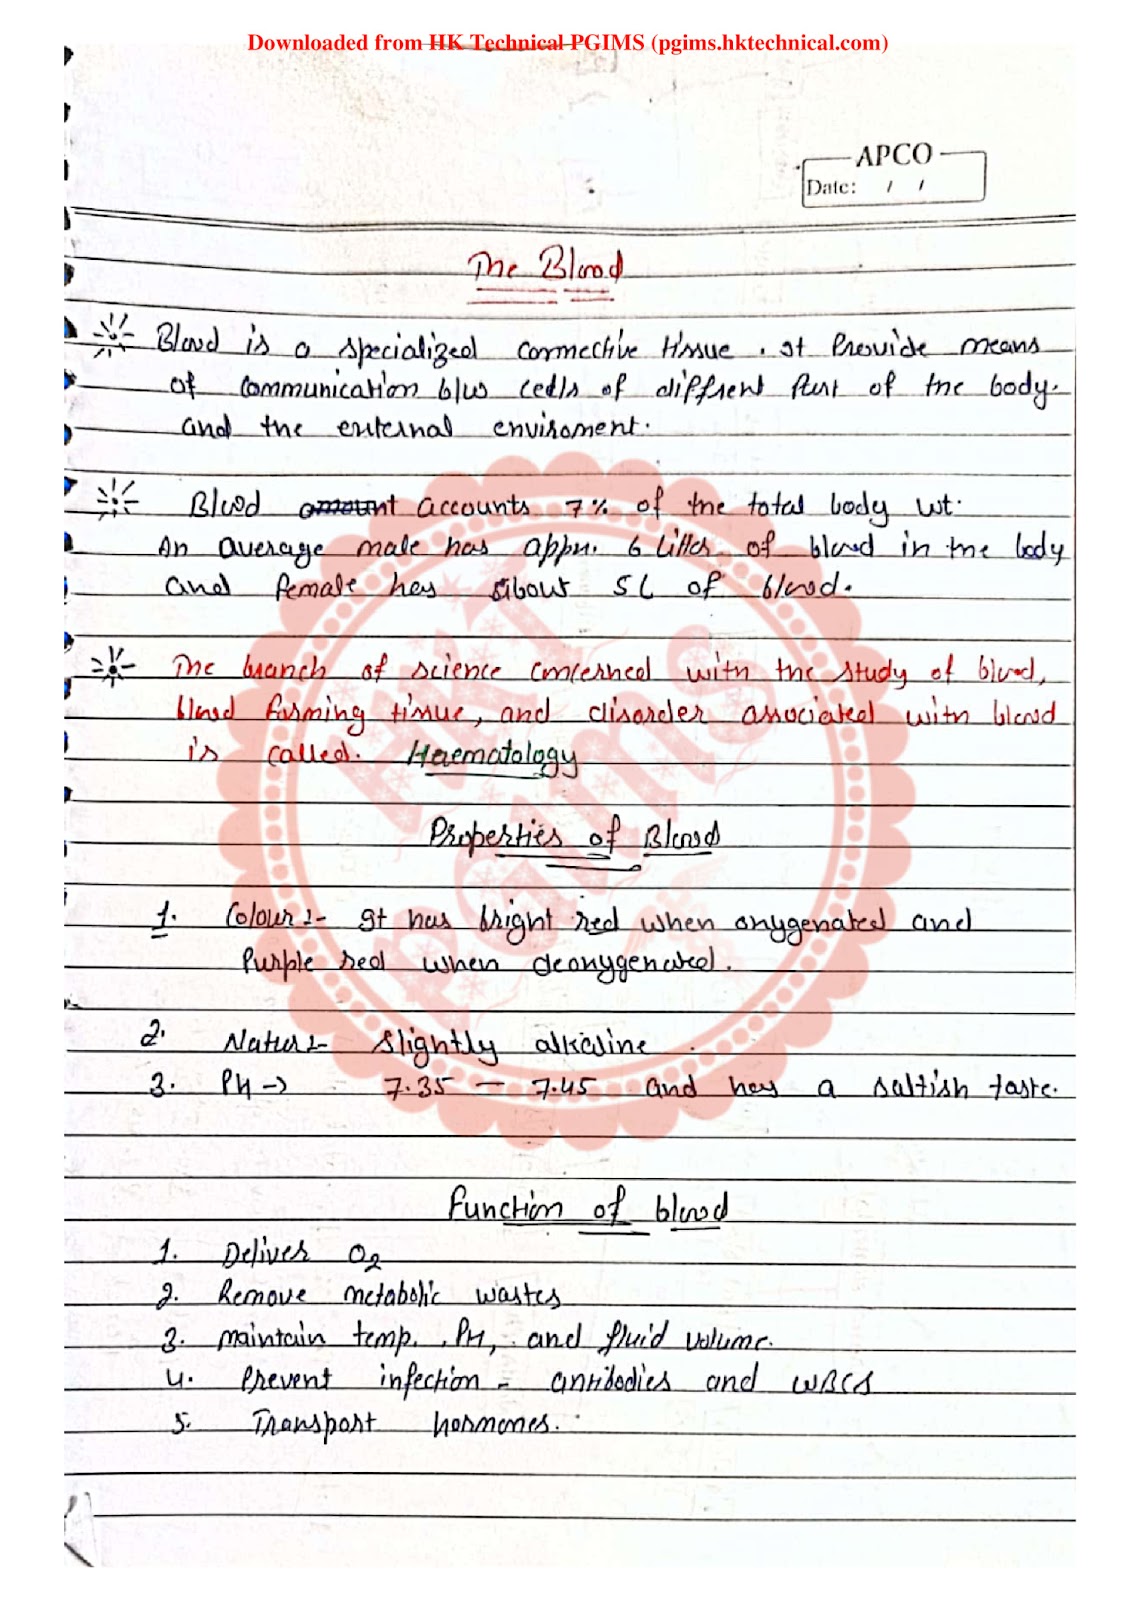 Downloaded from HK Technical PGIMS (pgims.hktechnical.com)
APCO
Date: / /
The Blood
Blood is a specialized connective tissue. It Provide means
of communication b/w cells of diffrent Part of the body.
and the external enviroment.
Blood amount accounts 7% of the total body wt.
An average male has appx. 6 litter of blood in the body
and female has about 5L of blood.
The branch of science concerned with the study of blood,
blood forming tissue, and disorder associated with blood
is called. Haematology
Properties of Blood
1. Colour :- It has bright red when oxygenated and
Purple red when deoxygenated.
2. Nature :- Slightly alkaline
3. PH → 7.35 — 7.45 and has a saltish taste.
Function of blood
1. Deliver O2
2. Remove metabolic wastes
3. maintain temp., PH, and fluid volume.
4. Prevent infection - antibodies and WBCs
5. Transport hormones.